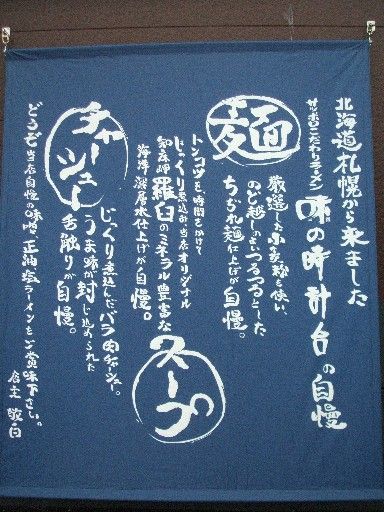 北海道札幌から来ました
サッポロこだわりラーメン
味の時計台の自慢
麺
厳選した小麦粉を使い、
のど越しのよいつるつるとした
ちぢれ麺仕上げが自慢。
スープ
トンコツを時間をかけて
じっくり煮込み当店オリジナル
知床岬羅臼のミネラル豊富な
海洋深層水仕上げが自慢。
チャーシュー
じっくり煮込んだバラ肉チャーシュー。
うま味が封じ込められた
舌触りが自慢。
どうぞ当店自慢の味噌、正油、塩ラーメンをご賞味下さい。
店主 敬白